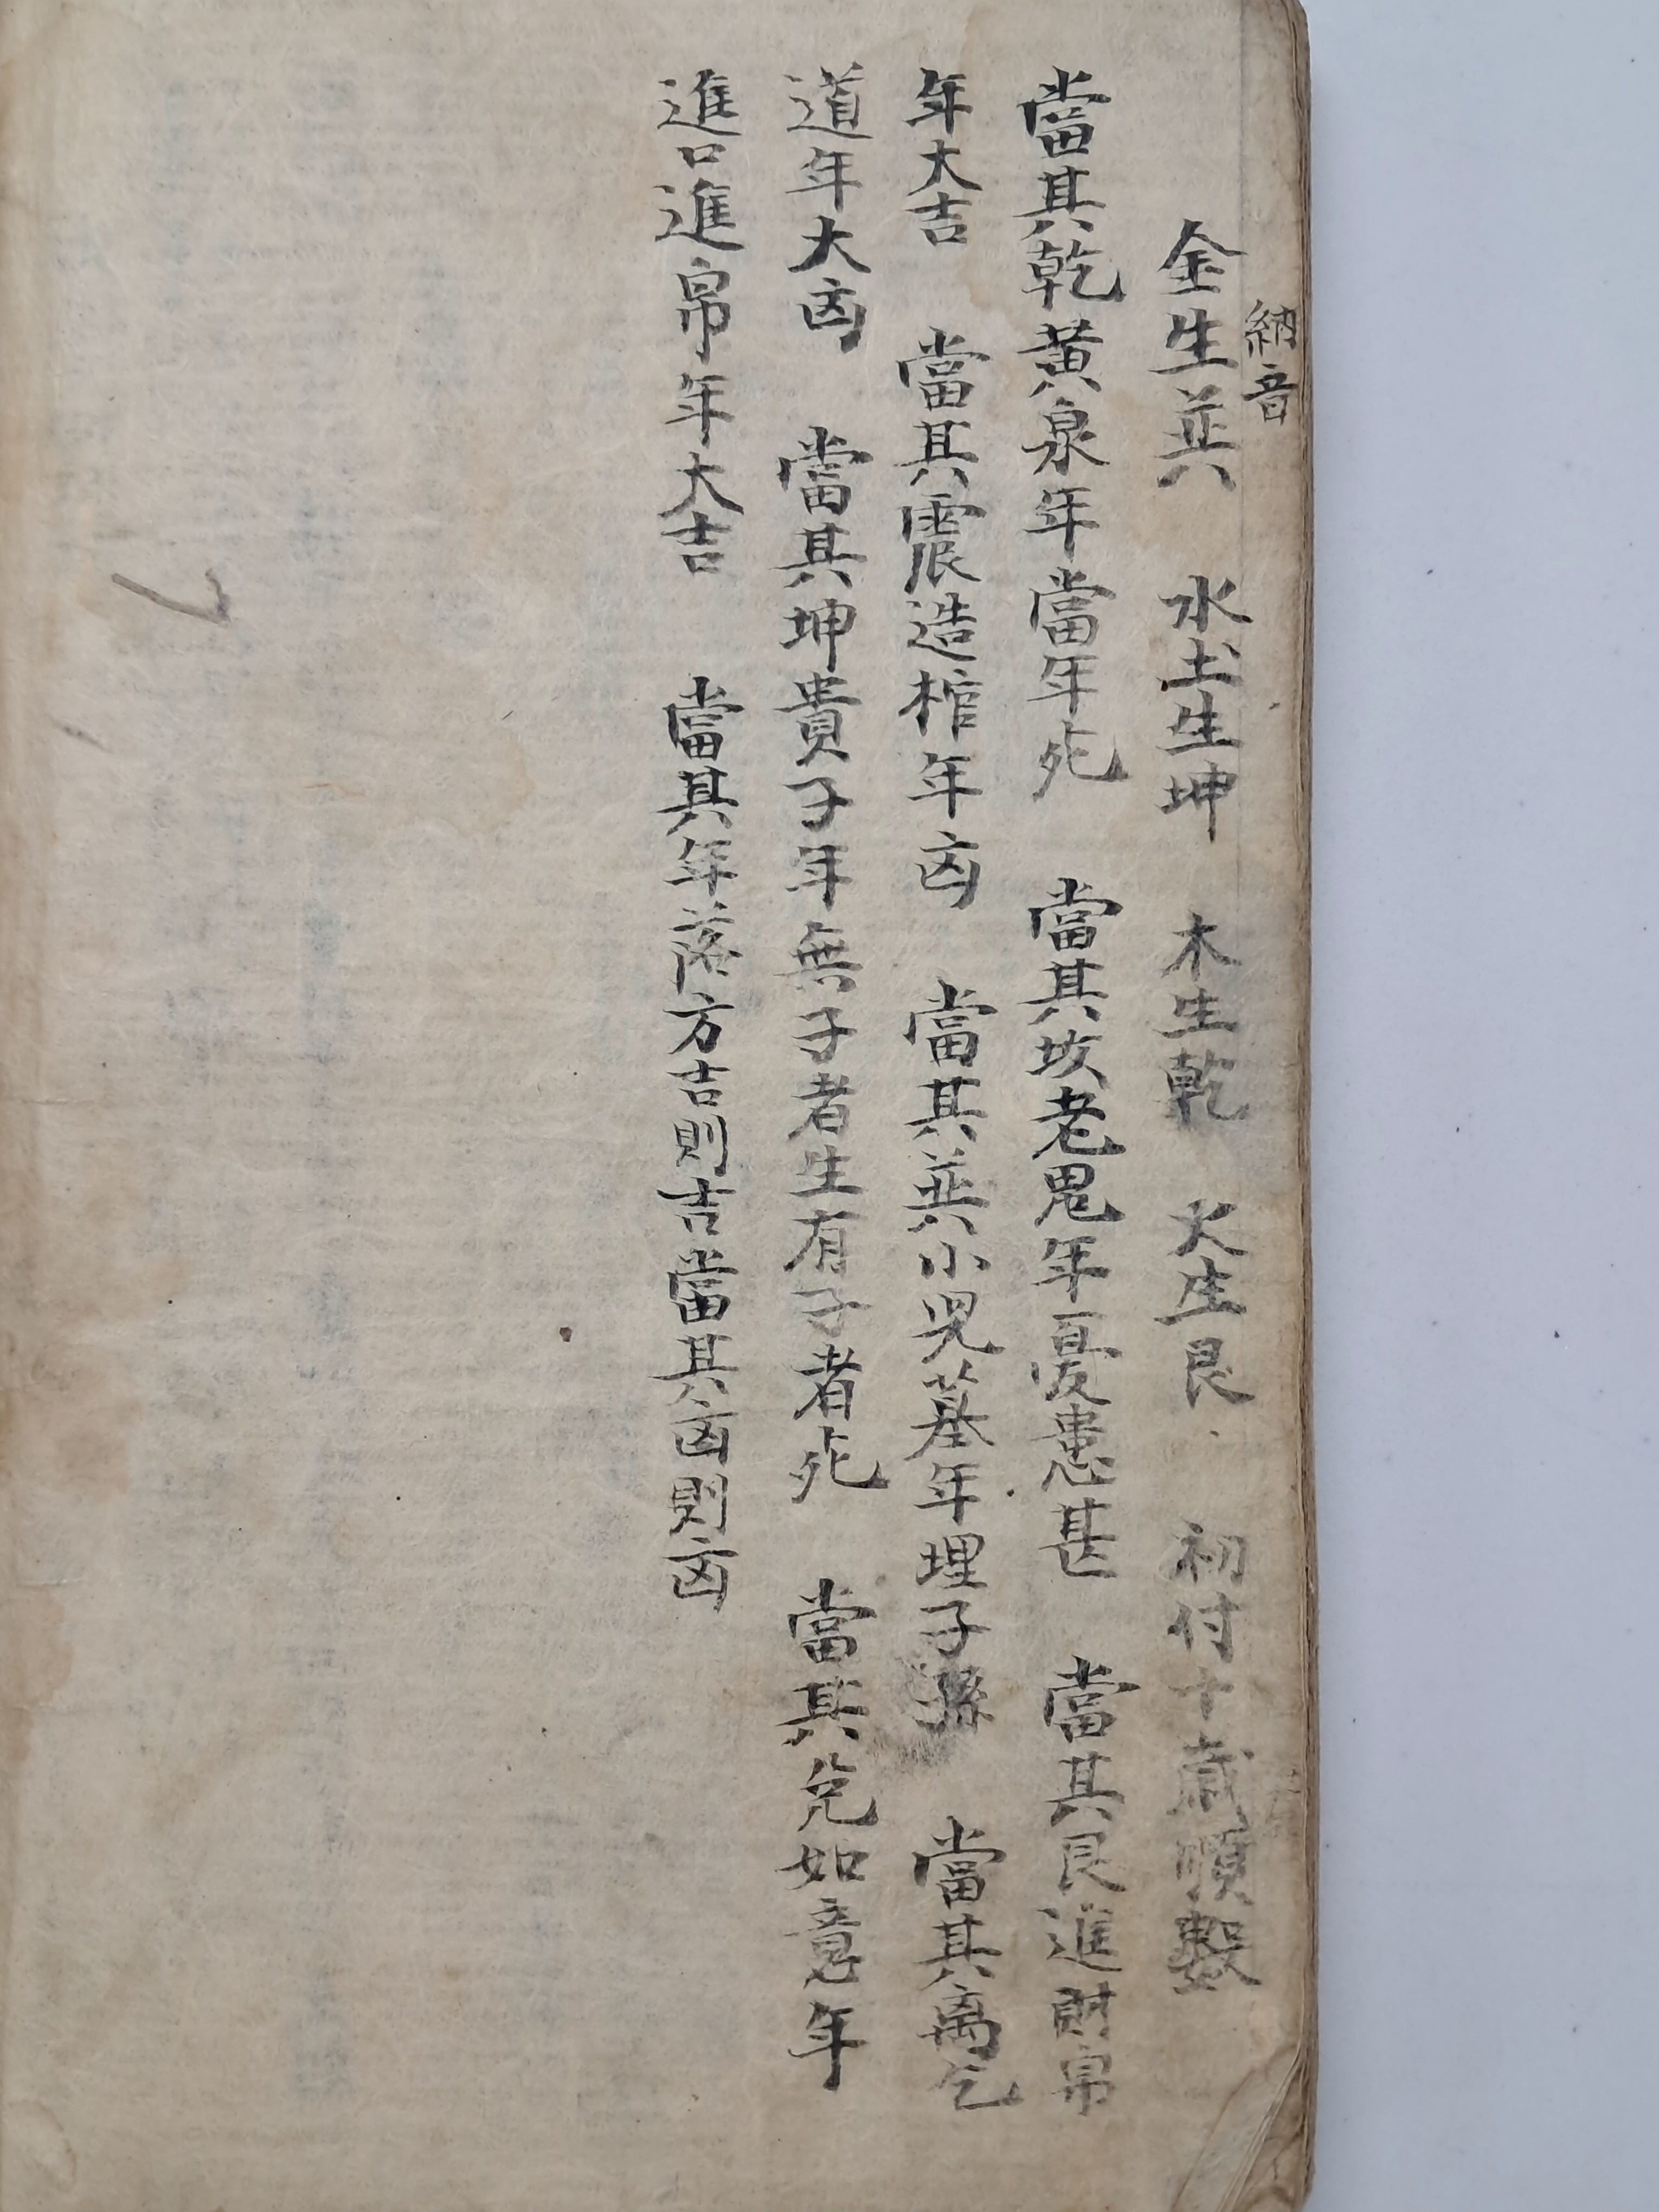 納音
金生㢲 水土生坤 木生乾 火生艮 初付十歲順數
當其乾黃泉年當年死 當其坎老鬼年憂患甚 當其艮進財帛
年大吉 當其震造棺年凶 當其㢲小兒墓年埋子孫 當其离乞
道年大凶 當其坤貴子年無子者生有子者死 當其兌如意年
進口進帛年大吉 當其年落方吉則吉當其凶則凶